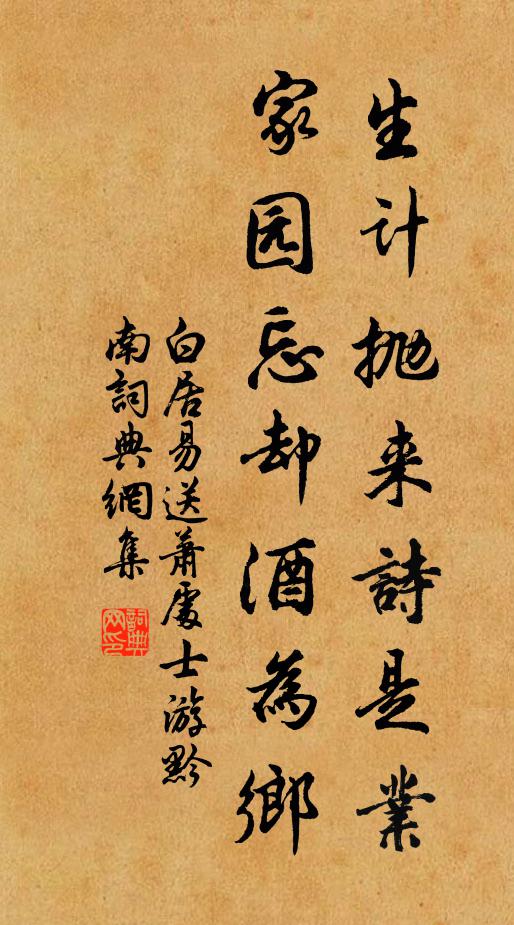 生计抛来詩是業
家园忘却酒為鄉
白居易送萧處士游黔
南詞典網集
詞典网印